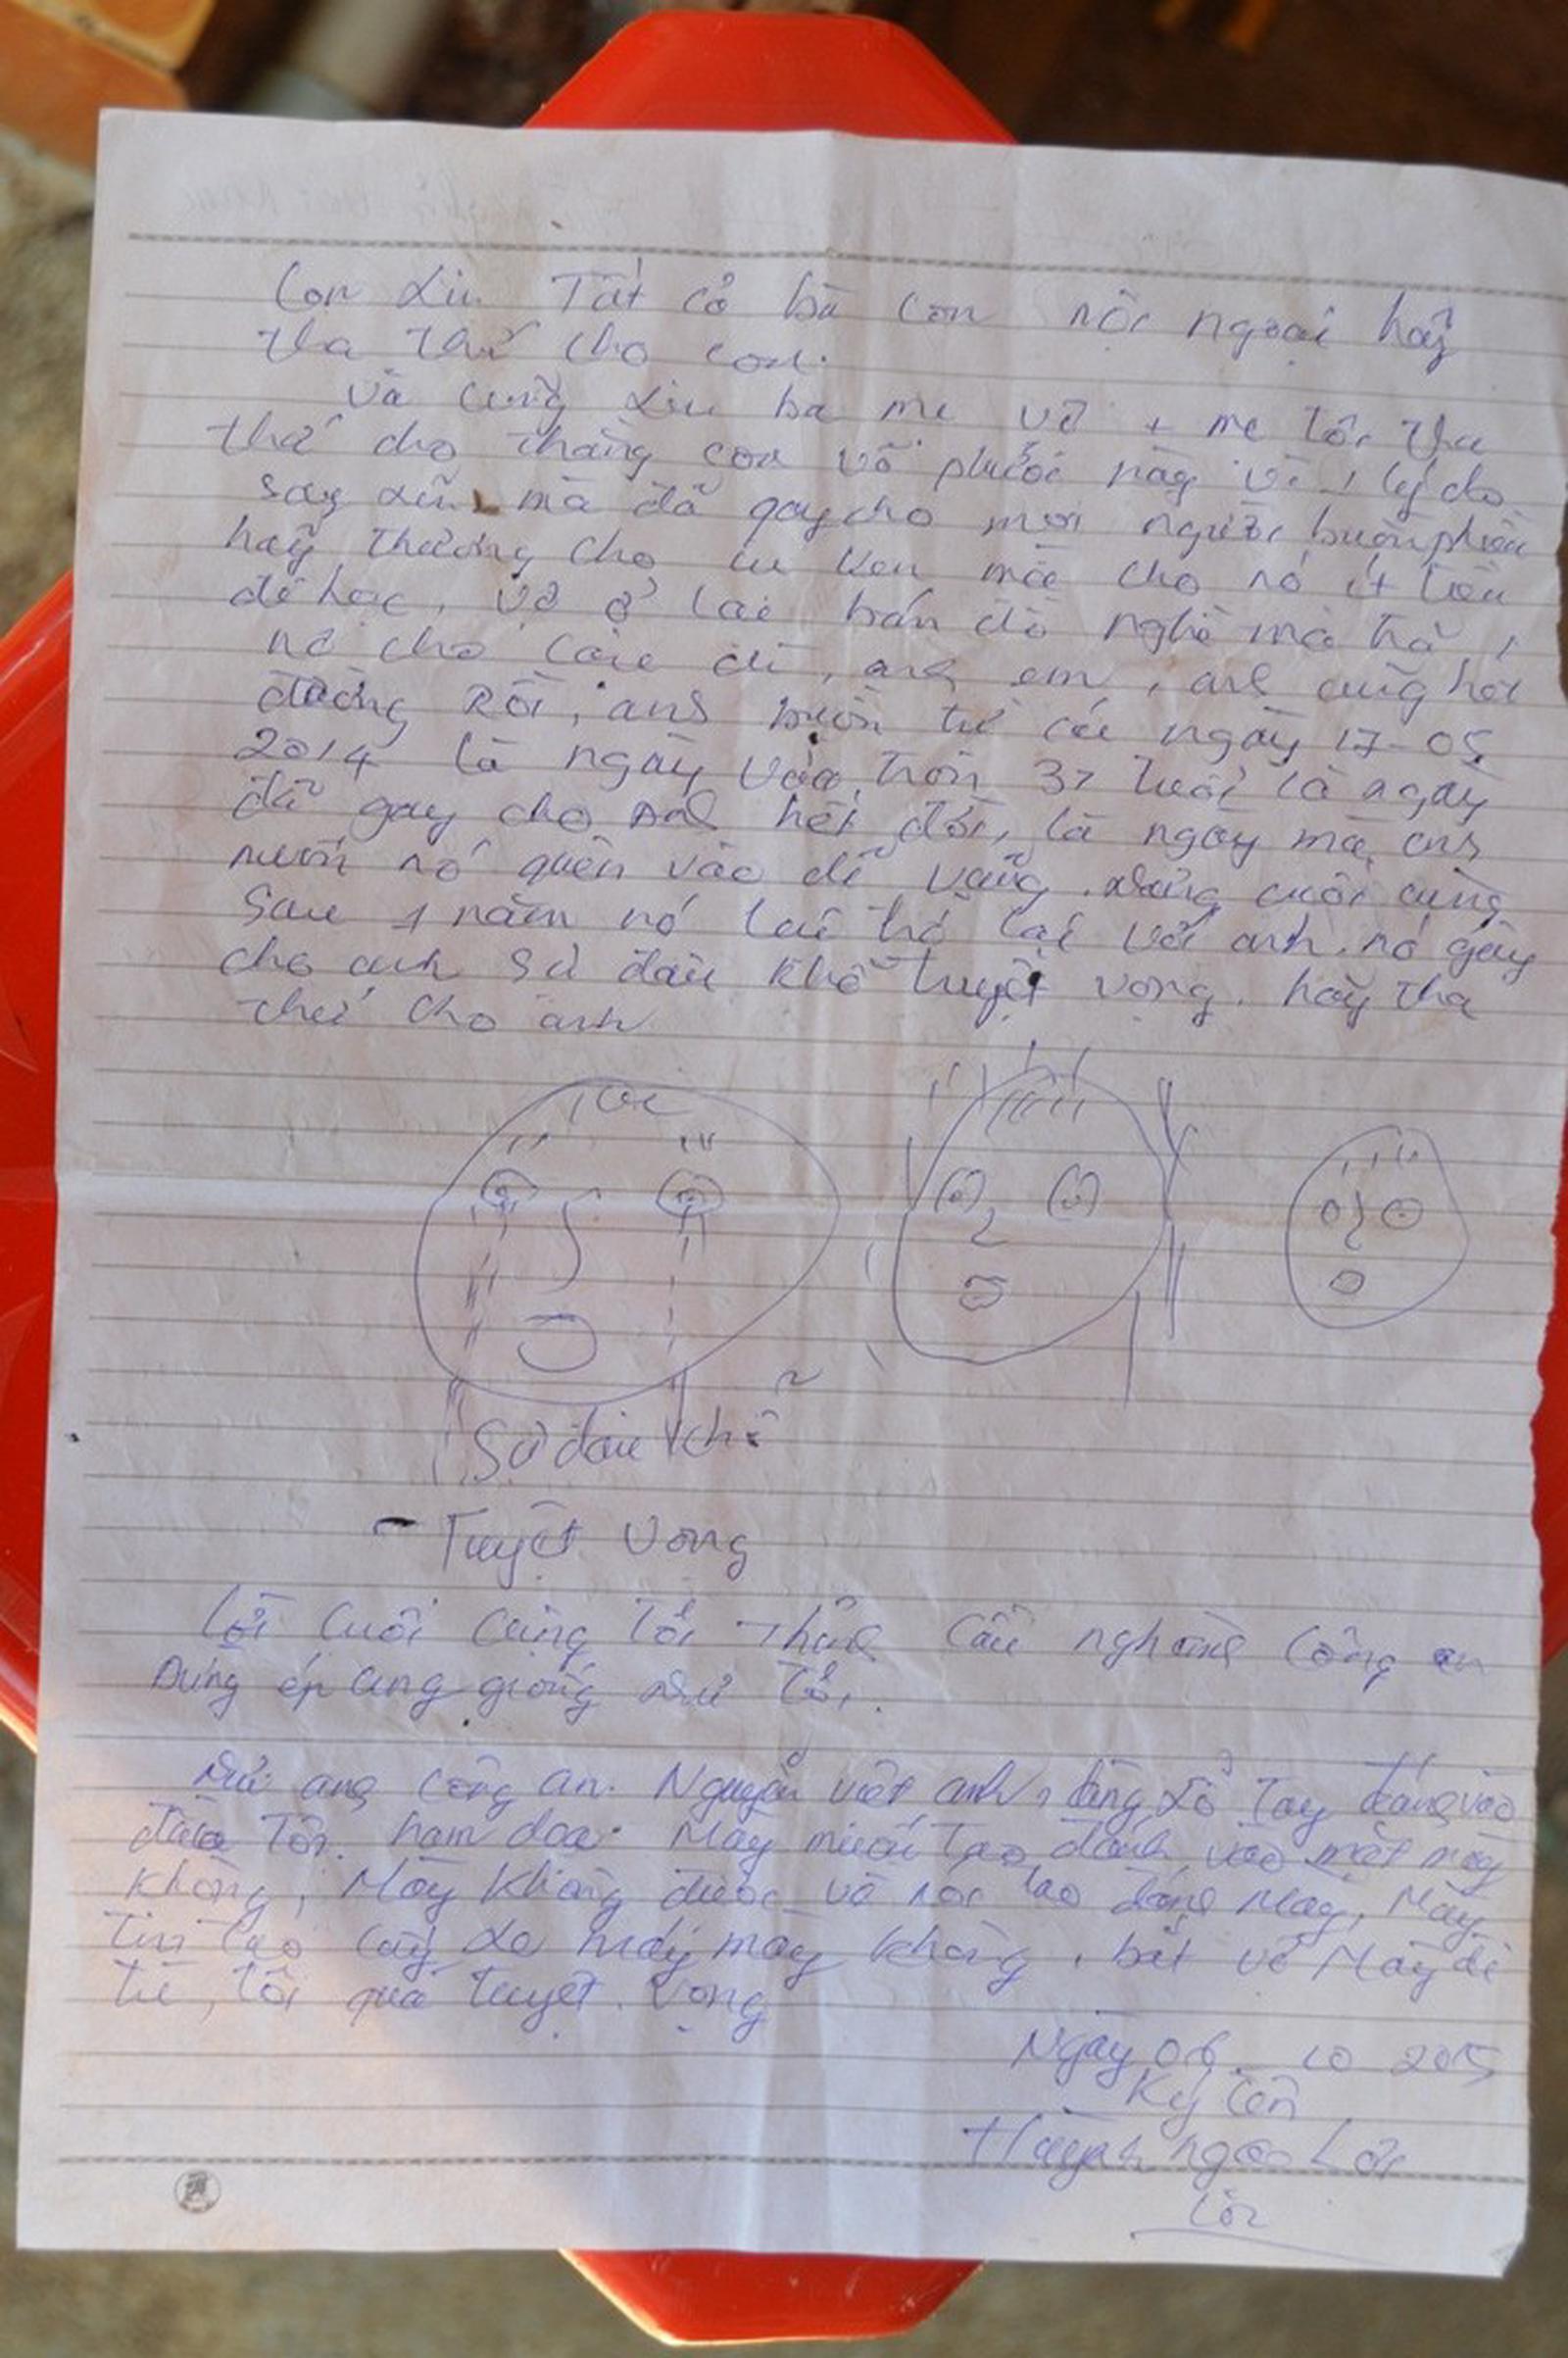 Con xin Tất cả bà con nội ngoại hãy
tha thứ cho con.
và cũng xin ba mẹ vợ + mẹ tôi tha
thứ cho thằng con vô phước này vì 1 lý do
say xỉn mà đã gây cho mọi người buồn phiền
hãy thương cho cu ken mà cho nó ít tiền
để học, vợ ở lại bán đồ nghề mà trả
nợ cho các dì, anh em, anh cũng hết
đường Rồi, anh buồn từ cái ngày 17-05
2014 là ngày vừa tròn 37 tuổi là ngày
đã gây cho anh hết đời, là ngày mà anh
muốn nó quên vào dĩ vãng. Nhưng cuối cùng
sau 1 năm nó lại trở lại với anh. nó gây
cho anh sự đau khổ tuyệt vọng. hãy tha
thứ cho anh
Sự đau khổ
- Tuyệt vọng
Lời Cuối Cùng Tôi Thỉnh Cầu nghành Công an
Đừng ép cung giống như tôi.
Như anh công an. Nguyễn việt anh, dùng sổ Tay đánh vào
đầu Tôi. hăm dọa. Mày muốn Tao đánh vào mặt mày
không, Mày không được về nói tao đánh Mày, Mày
tin tao lấy xe mấy mày không, bắt vợ Mày đi
tù, tôi quá tuyệt vọng
Ngày 06 10 2015
Ký tên
Huỳnh ngọc Lợi
Lợi